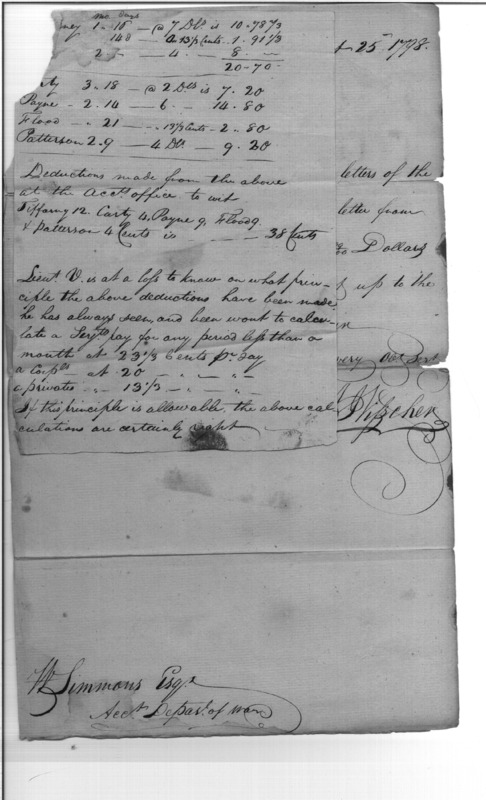 mo Days
ney 1 - 16 — @ 7 Dls is 10.78⅔
148 — a 13⅓ Cents - 1.91⅓
2 - — 4 — 8
20-70-
ty 3.18 — @ 2 Dls is 7.20
Payne - 2.14 — 6 - 14.80
Flood - " 21 — " 13⅓ Cents - 2.80
Patterson 2.9 — 4 Dls — 9.20
Deductions made from the above
at the Acct. office to wit
Tiffany 12. Carty 4. Payne 9. Flood 9
& Patterson 4 Cents is — 38 Cents
Lieut. V. is at a loss to know on what prin-
ciple the above deductions have been made.
he has always seen, and been wont to calcu-
late a Sergts pay for any period less than a
month at 23⅓ Cents pr. Day
a Corpls - at 20 — " — " — "
a privates " " 13⅓ — " — " "
If this principle is allowable, the above cal-
culations are certainly right
25th 1798.
letters of the
letter from
Dollars
up to the
very Obt Servt
W Simmons Esqr
Acct. Depart. of War